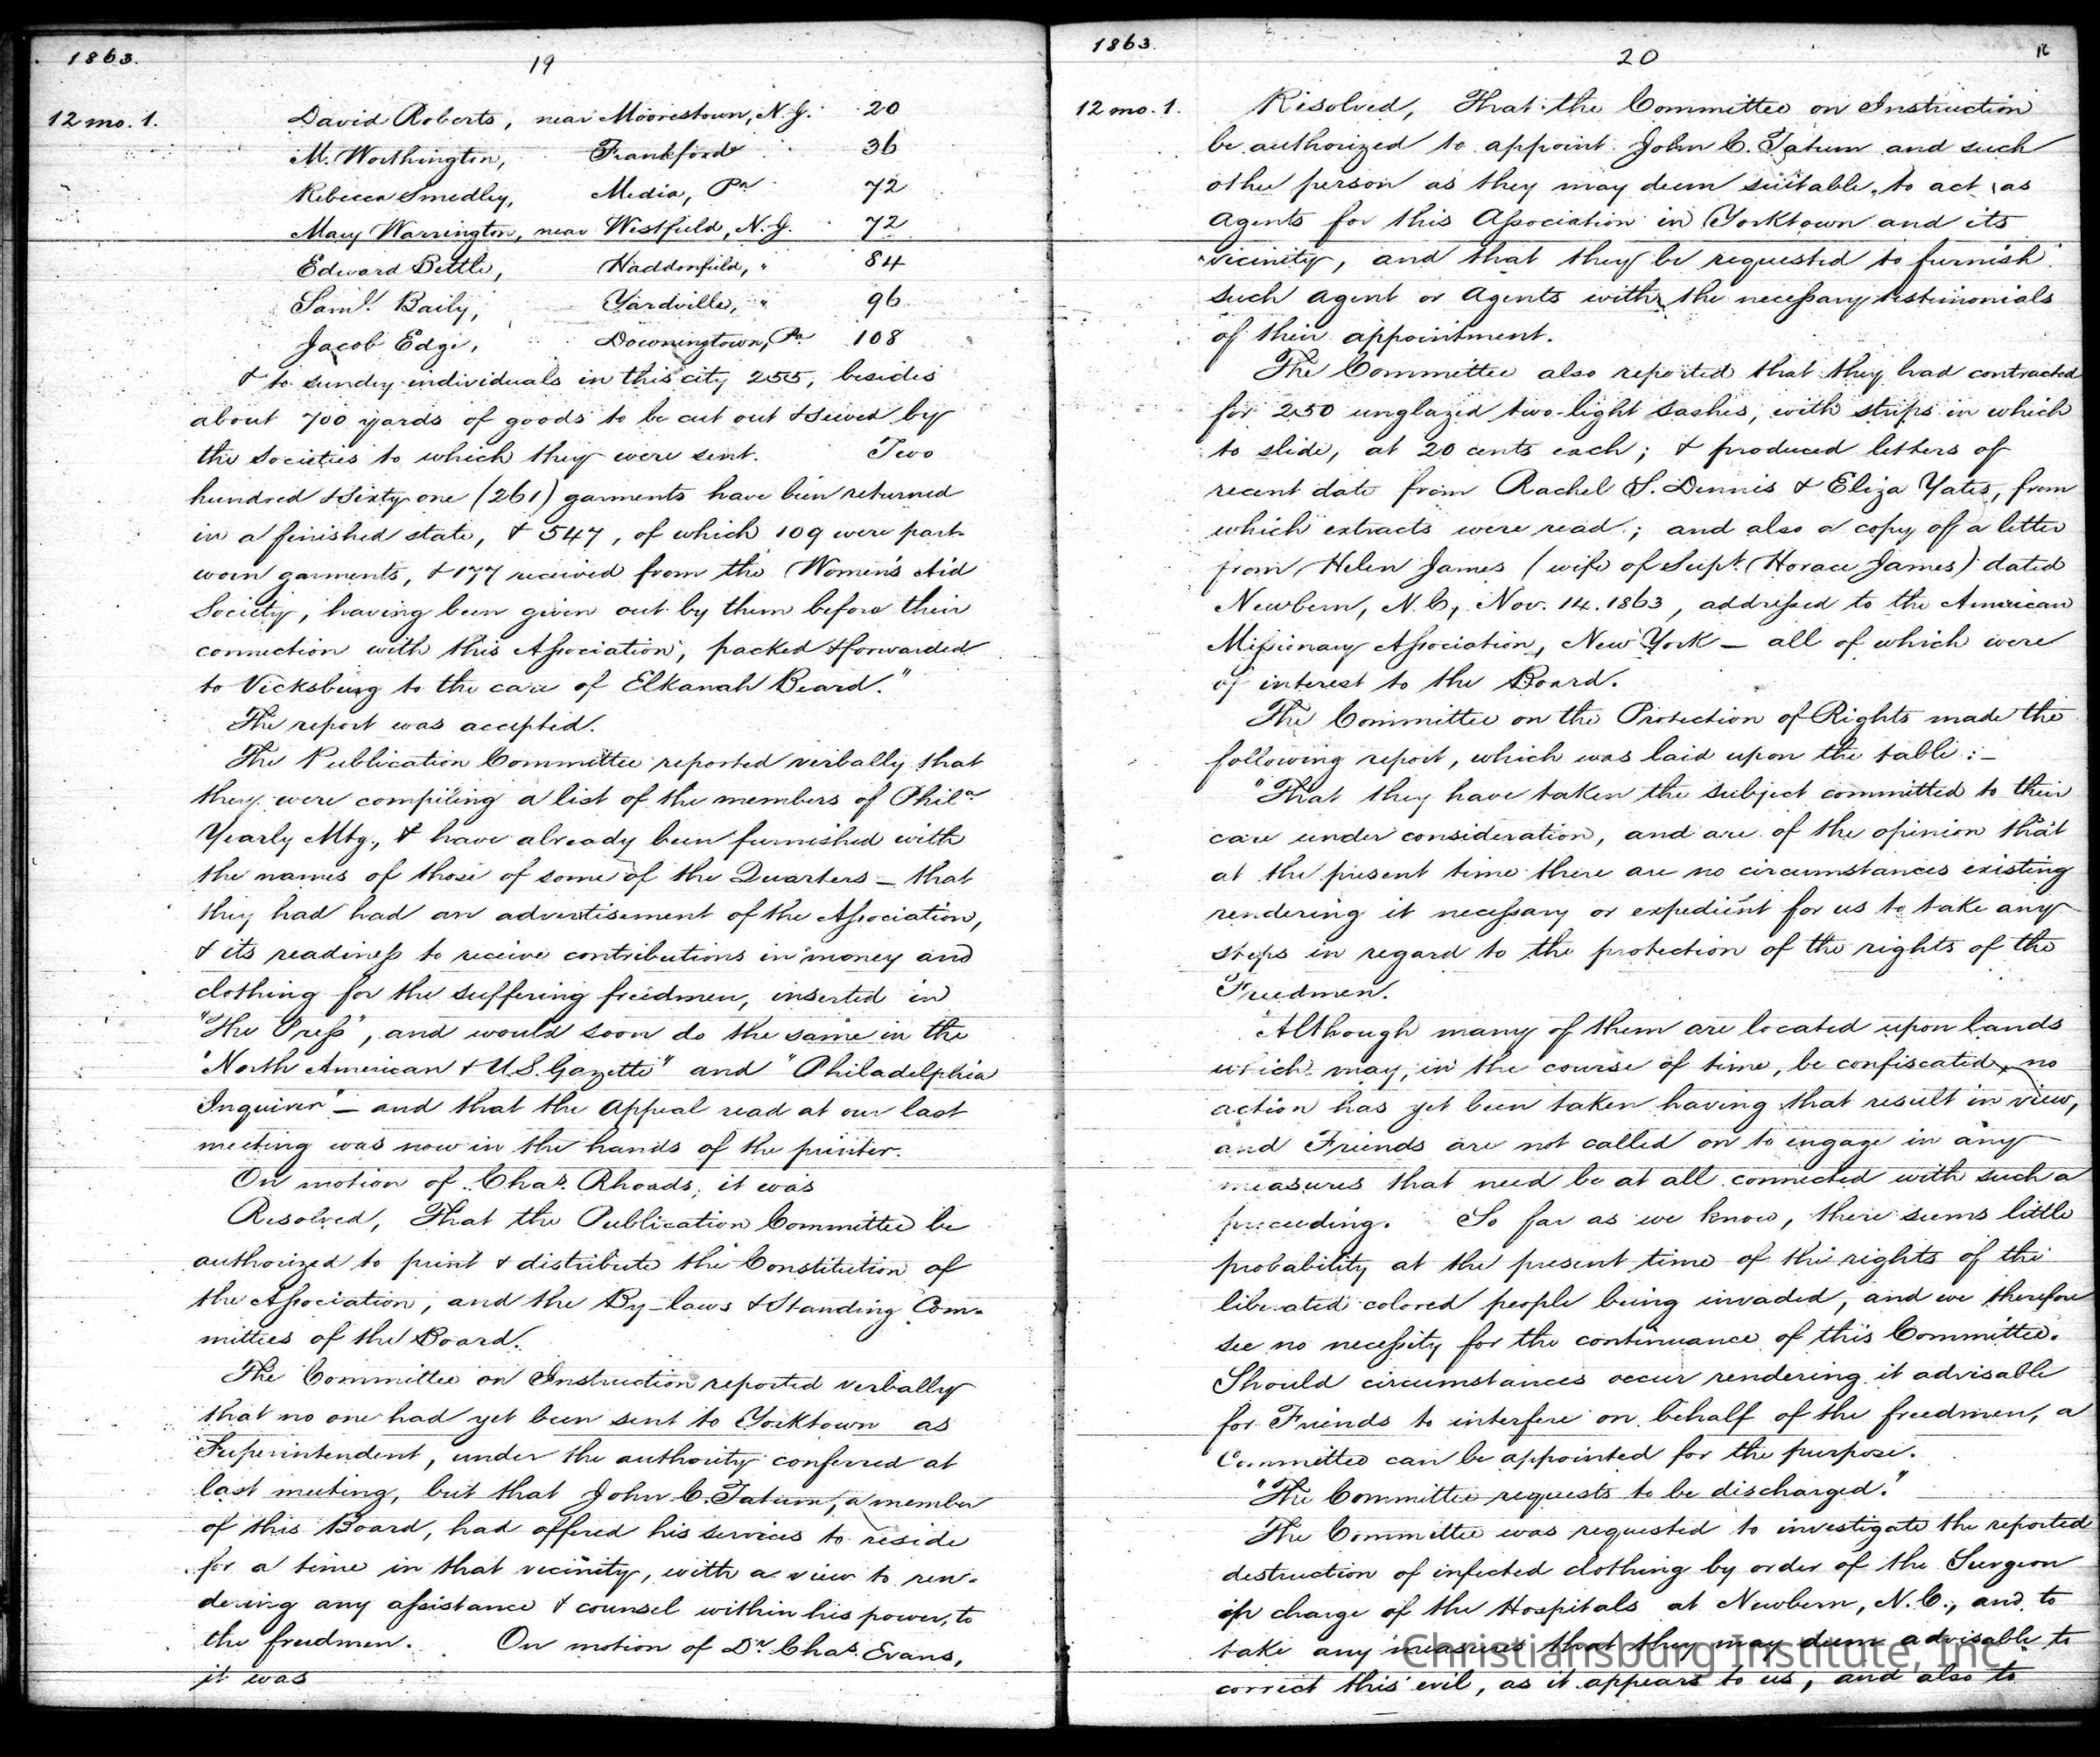 1863.
19
12 mo. 1.
David Roberts, near Moorestown, N.J. 20
M. Worthington, Frankford 36
Rebecca Smedley, Media, Pa 72
Mary Warrington, near Westfield, N.J. 72
Edward Bettle, Haddonfield, " 84
Saml. Baily, Yardville, " 96
Jacob Edge, Downingtown, Pa 108
& to sundry individuals in this city 255, besides
about 700 yards of goods to be cut out & sewed by
the Societies to which they were sent. Two
hundred & sixty one (261) garments have been returned
in a finished state, & 547, of which 109 were part-
worn garments, & 177 received from the Women's Aid
Society, having been given out by them before their
connection with this Association, packed & forwarded
to Vicksburg to the care of Elkanah Beard."
The report was accepted.
The Publication Committee reported verbally that
they were compiling a list of the members of Phila
Yearly Mtg., & have already been furnished with
the names of those of some of the Quarters – that
they had had an advertisement of the Association,
& its readiness to receive contributions in money and
clothing for the suffering freedmen, inserted in
"The Press", and would soon do the same in the
"North American & U.S. Gazette" and "Philadelphia
Inquirer" – and that the Appeal read at our last
meeting was now in the hands of the printer.
On motion of Chas. Rhoads, it was
Resolved, That the Publication Committee be
authorized to print & distribute the Constitution of
the Association, and the By-laws & Standing Com-
mittees of the Board.
The Committee on Instruction reported verbally
that no one had yet been sent to Yorktown as
Superintendent, under the authority conferred at
last meeting, but that John C. Tatum, a member
of this Board, had offered his services to reside
for a time in that vicinity, with a view to ren-
dering any assistance & counsel within his power, to
the freedmen. On motion of Dr. Chas. Evans,
it was
1863.
20
12 mo. 1.
Resolved, That the Committee on Instruction
be authorized to appoint John C. Tatum and such
other person as they may deem suitable, to act as
Agents for this Association in Yorktown and its
vicinity, and that they be requested to furnish
such Agent or Agents with the necessary testimonials
of their appointment.
The Committee also reported that they had contracted
for 250 unglazed two-light sashes, with strips in which
to slide, at 20 cents each; & produced letters of
recent date from Rachel S. Dennis & Eliza Yates, from
which extracts were read; and also a copy of a letter
from Helen James (wife of Supt. Horace James) dated
Newbern, N.C., Nov. 14. 1863, addressed to the American
Missionary Association, New York – all of which were
of interest to the Board.
The Committee on the Protection of Rights made the
following report, which was laid upon the table:–
"That they have taken the subject committed to their
care under consideration, and are of the opinion that
at the present time there are no circumstances existing
rendering it necessary or expedient for us to take any
steps in regard to the protection of the rights of the
Freedmen.
"Although many of them are located upon lands
which may, in the course of time, be confiscated, no
action has yet been taken having that result in view,
and Friends are not called on to engage in any
measures that need be at all connected with such a
proceeding. So far as we know, there seems little
probability at the present time of the rights of the
liberated colored people being invaded, and we therefore
see no necessity for the continuance of this Committee.
Should circumstances occur rendering it advisable
for Friends to interfere on behalf of the freedmen, a
Committee can be appointed for the purpose.
"The Committee requests to be discharged."
The Committee was requested to investigate the reported
destruction of infected clothing by order of the Surgeon
in charge of the Hospitals at Newbern, N.C., and to
take any measures that they may deem advisable to
correct this evil, as it appears to us, and also to
Christiansburg Institute, Inc.